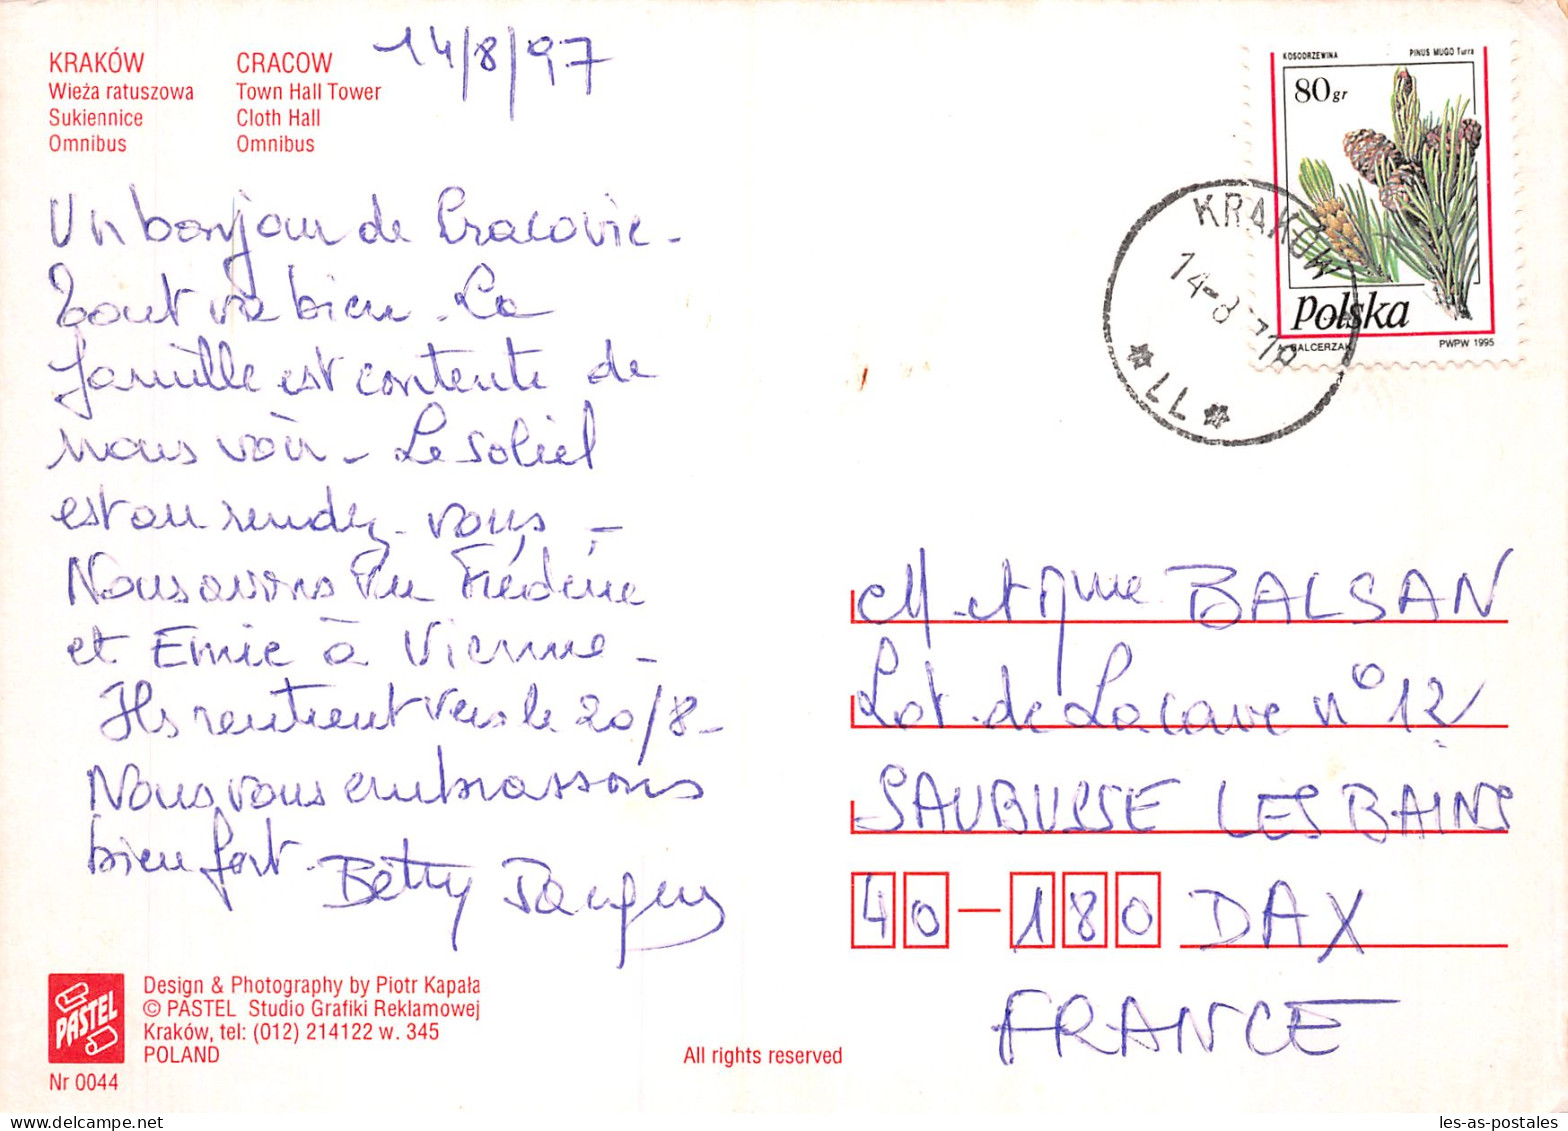 KRAKÓW
Wieża ratuszowa
Sukiennice
Omnibus
CRACOW
Town Hall Tower
Cloth Hall
Omnibus
14/8/97
Un bonjour de Cracovie -
Tout va bien - La
famille est contente de
nous voir - Le soleil
est au rendez-vous -
Nous avons vu Frédéric
et Emie à Vienne -
Ils rentrent vers le 20/8 -
Nous vous embrassons
bien fort.
Betty
KOSODRZEWINA PINUS MUGO Turra
80 gr
Polska
A. BALCERZAK PWPW 1995
KRAKÓW
14-8
M et Mme BALSAN
Lot. de Lacave n° 12
SAUBUSSE LES BAINS
40-180 DAX
FRANCE
PASTEL
Design & Photography by Piotr Kapała
© PASTEL Studio Grafiki Reklamowej
Kraków, tel: (012) 214122 w. 345
POLAND
Nr 0044
All rights reserved
les-as-postales